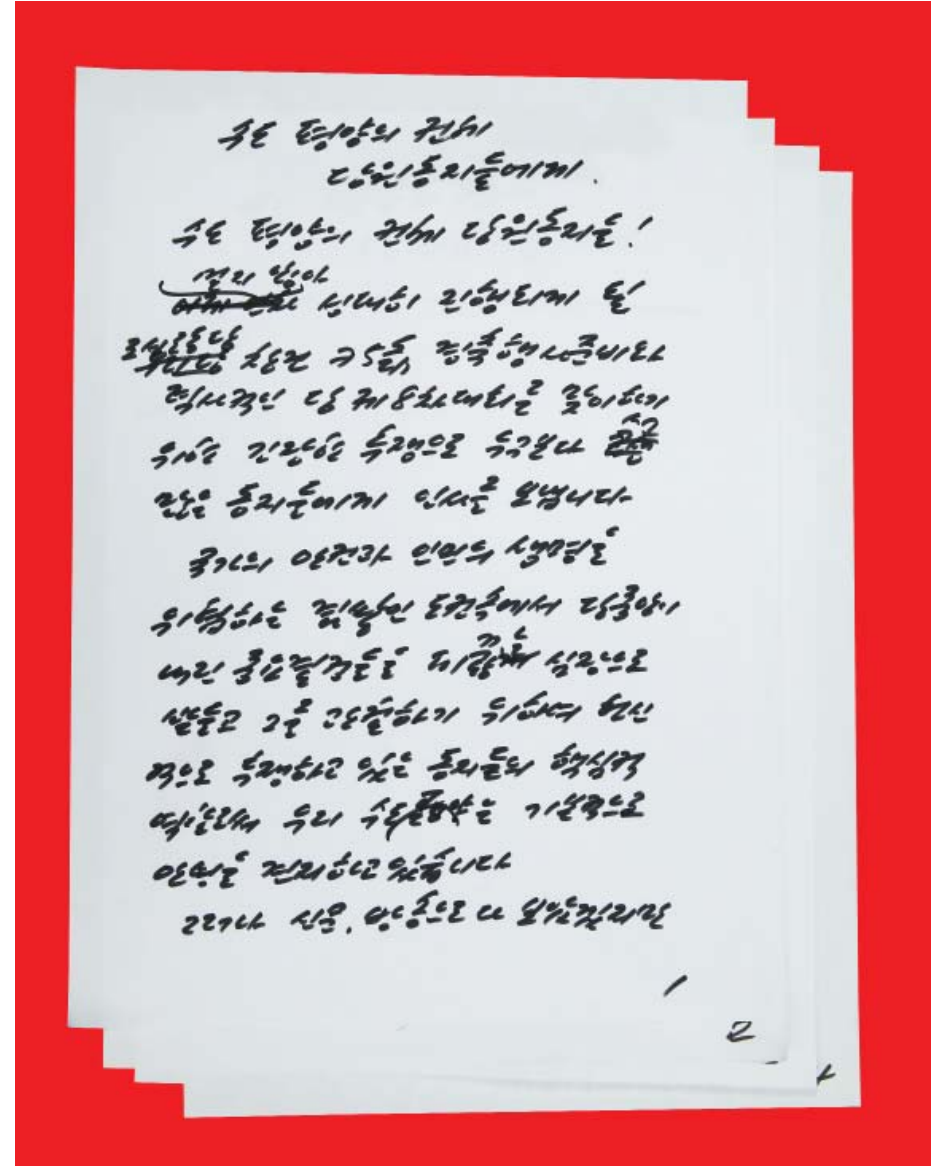 수도 평양의 전체
당원동지들에게.
수도 평양의 전체 당원동지들!
멀지 않아
성대히 진행되게 될
조선로동당 창건 75돐 경축행사준비와
력사적인 당 제8차대회를 맞이하기
위한 긴장한 투쟁으로 누구보다 수고
많은 동지들에게 인사를 보냅니다.
국가의 안전과 인민의 생명을
위협하는 겹쌓인 도전속에서 당중앙이
내린 중요결정들을 피끓는 심장으로
받들고 그를 관철하기 위하여 헌신
적으로 투쟁하고 있는 동지들의 핵심적
우리 수도는 기본적으로
안정을 견지하고 있습니다
그러나 신문, 방송으로 다 보았겠지만
1
2